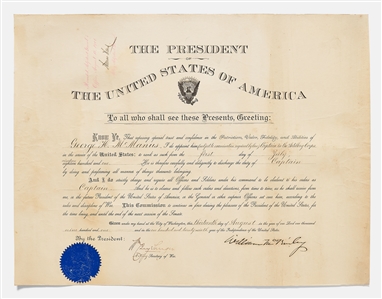 THE PRESIDENT
OF
THE UNITED STATES OF AMERICA
To all who shall see these Presents, Greeting:
Know Ye, That reposing special trust and confidence in the and abilities of
George H. McManus, I do appoint him Captain in the Artillery Corps
in the service of the United States: to rank as such from the first day of July
nineteen hundred and one. He is therefore carefully and diligently to discharge the duty of Captain
by doing and performing all manner of things thereunto belonging.
And I do strictly charge and require all Officers and Soldiers under his command to be obedient to his orders as
Captain. And he is to observe and follow such orders and directions, from time to time, as he shall receive from
me, or the future President of the United States of America, or the General or other superior Officers set over him, according to the
rules and discipline of War. This Commission to continue in force during the pleasure of the President of the United States, for
the time being, and until the end of the next session of the Senate.
Given under my hand at the City of Washington, this day of August in the year of our Lord one thousand
nine hundred and one, and in the one hundred and twenty-sixth year of the Independence of the United States.
By the President:
William McKinley
Secretary of War.